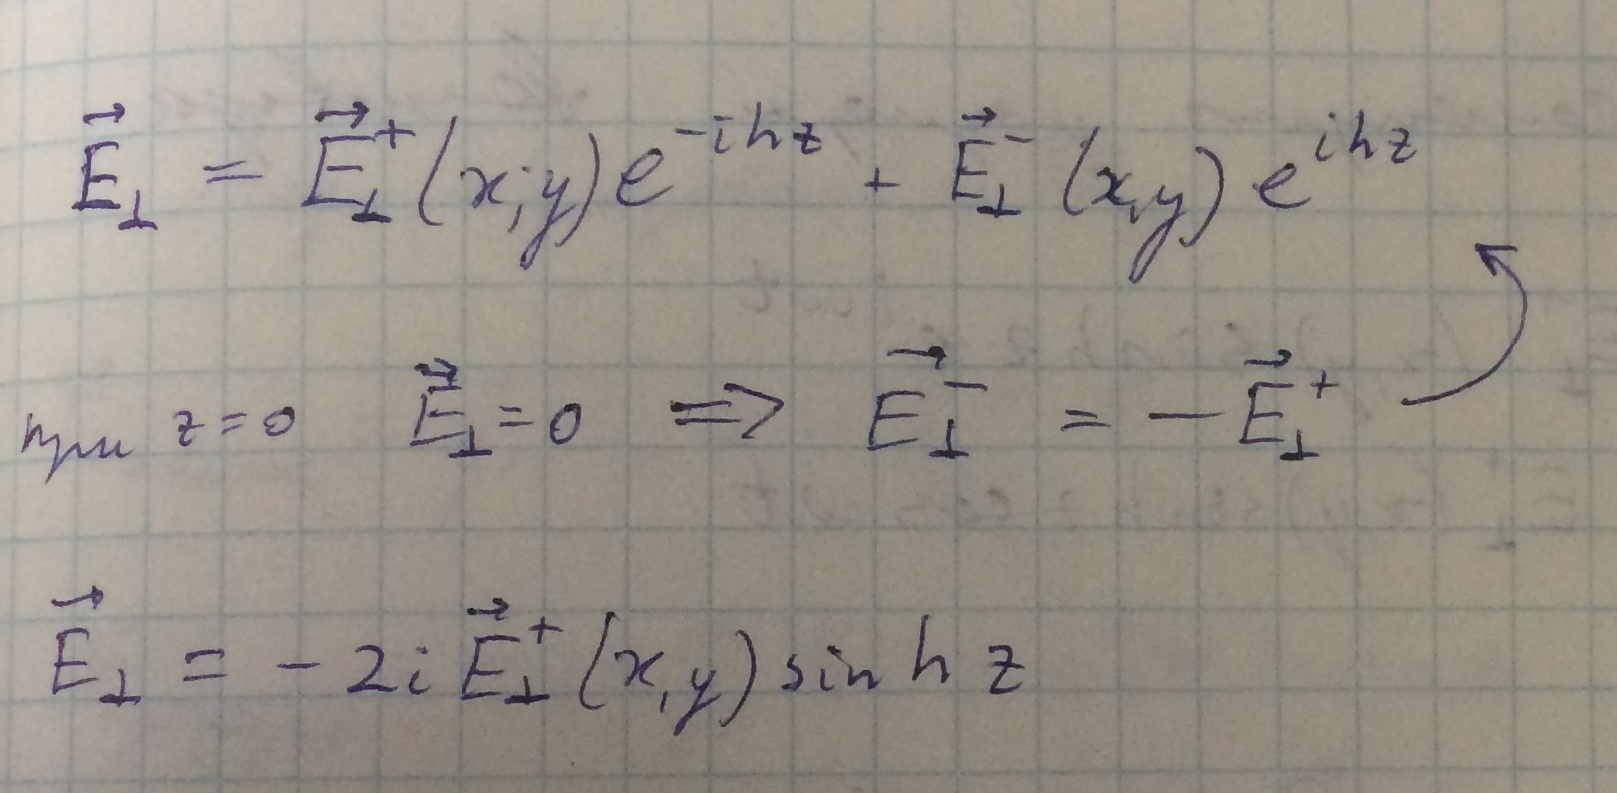 $\vec{E}_\perp = \vec{E}_\perp^+(x,y)e^{-ihz} + \vec{E}_\perp^-(x,y)e^{ihz}$
при $z=0$ $\vec{E}_\perp=0 \Rightarrow \vec{E}_\perp^- = -\vec{E}_\perp^+$
$\vec{E}_\perp = -2i\vec{E}_\perp^+(x,y)\sin hz$